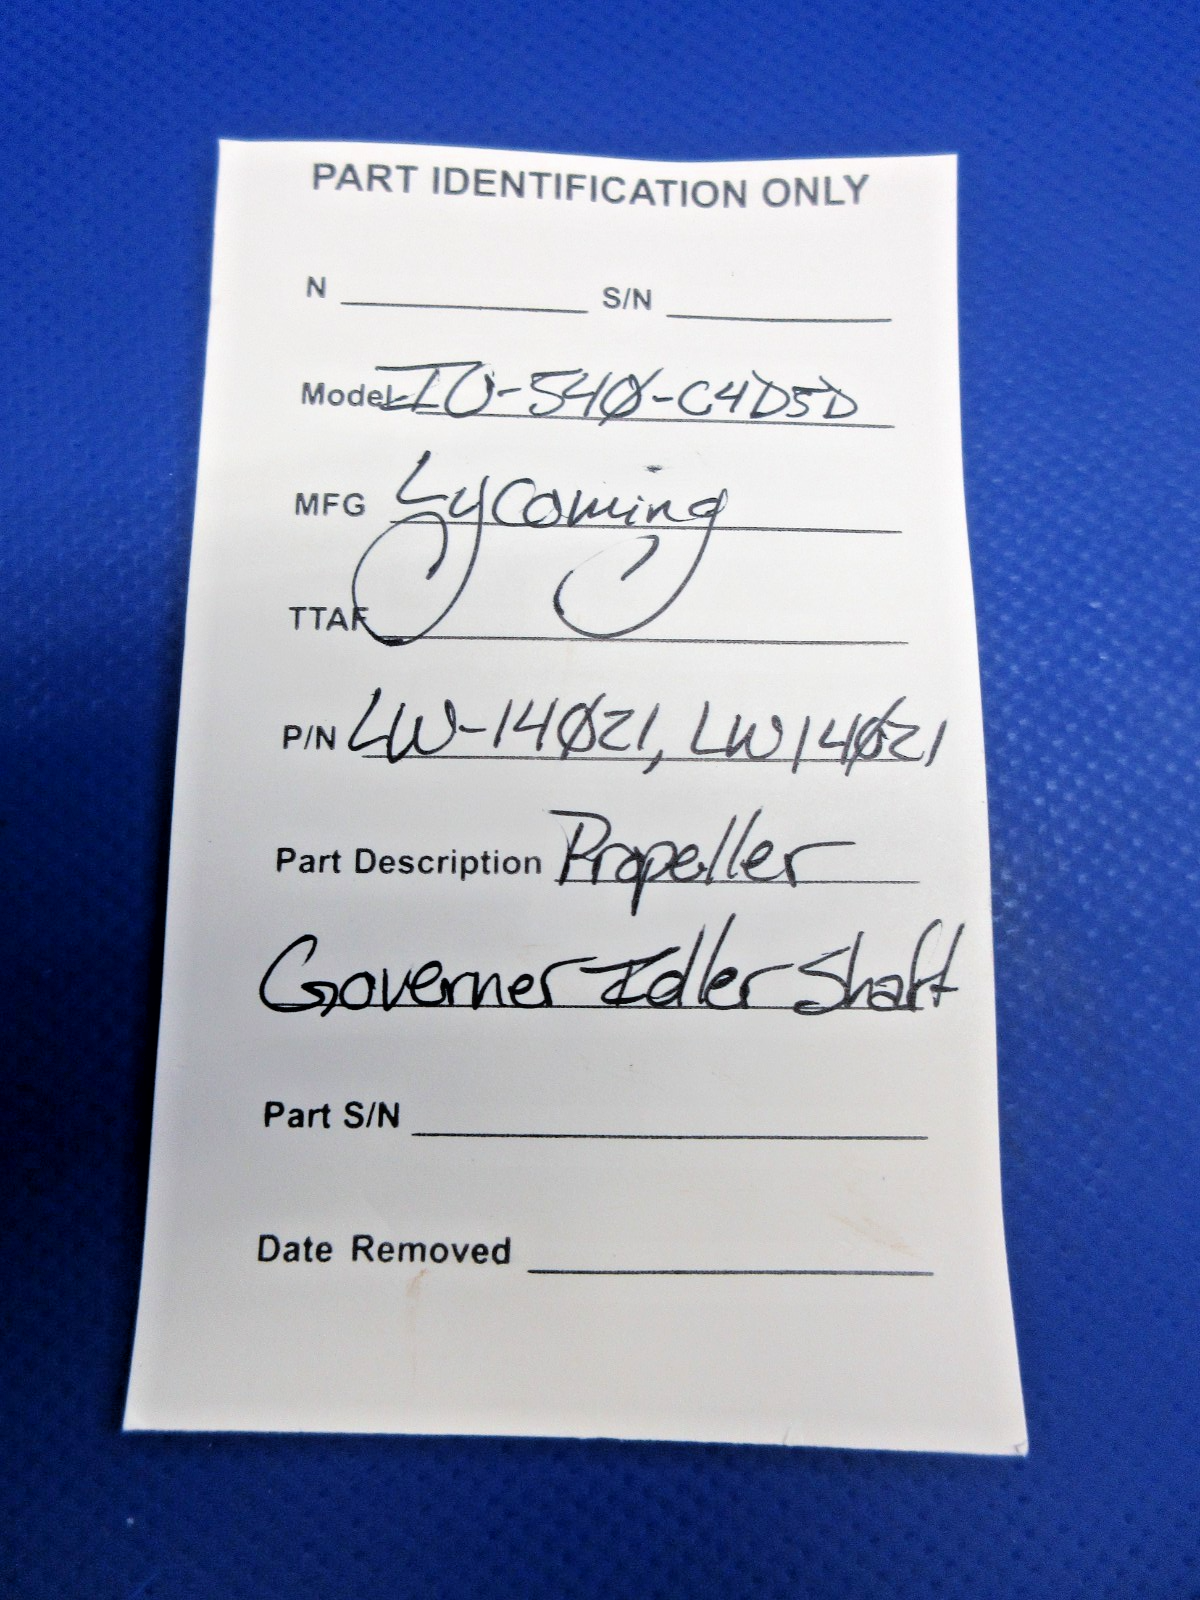 PART IDENTIFICATION ONLY
N S/N
Model IO-540-C4D5D
MFG Lycoming
TTAF
P/N LW-14021, LW14021
Part Description Propeller
Governer Idler Shaft
Part S/N
Date Removed